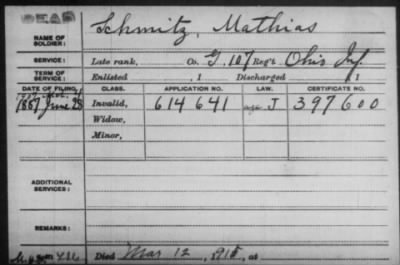 DEAD
NAME OF SOLDIER: Schmitz, Mathias
SERVICE: Late rank, Co. G, 107 Reg't Ohio Inf.
TERM OF SERVICE: Enlisted , 1 Discharged , 1
DATE OF FILING. CLASS. APPLICATION NO. LAW. CERTIFICATE NO.
1887 June 28 Invalid, 614641 J 397600
Widow,
Minor,
ADDITIONAL SERVICES:
REMARKS:
Died Mar 12, 1915, at